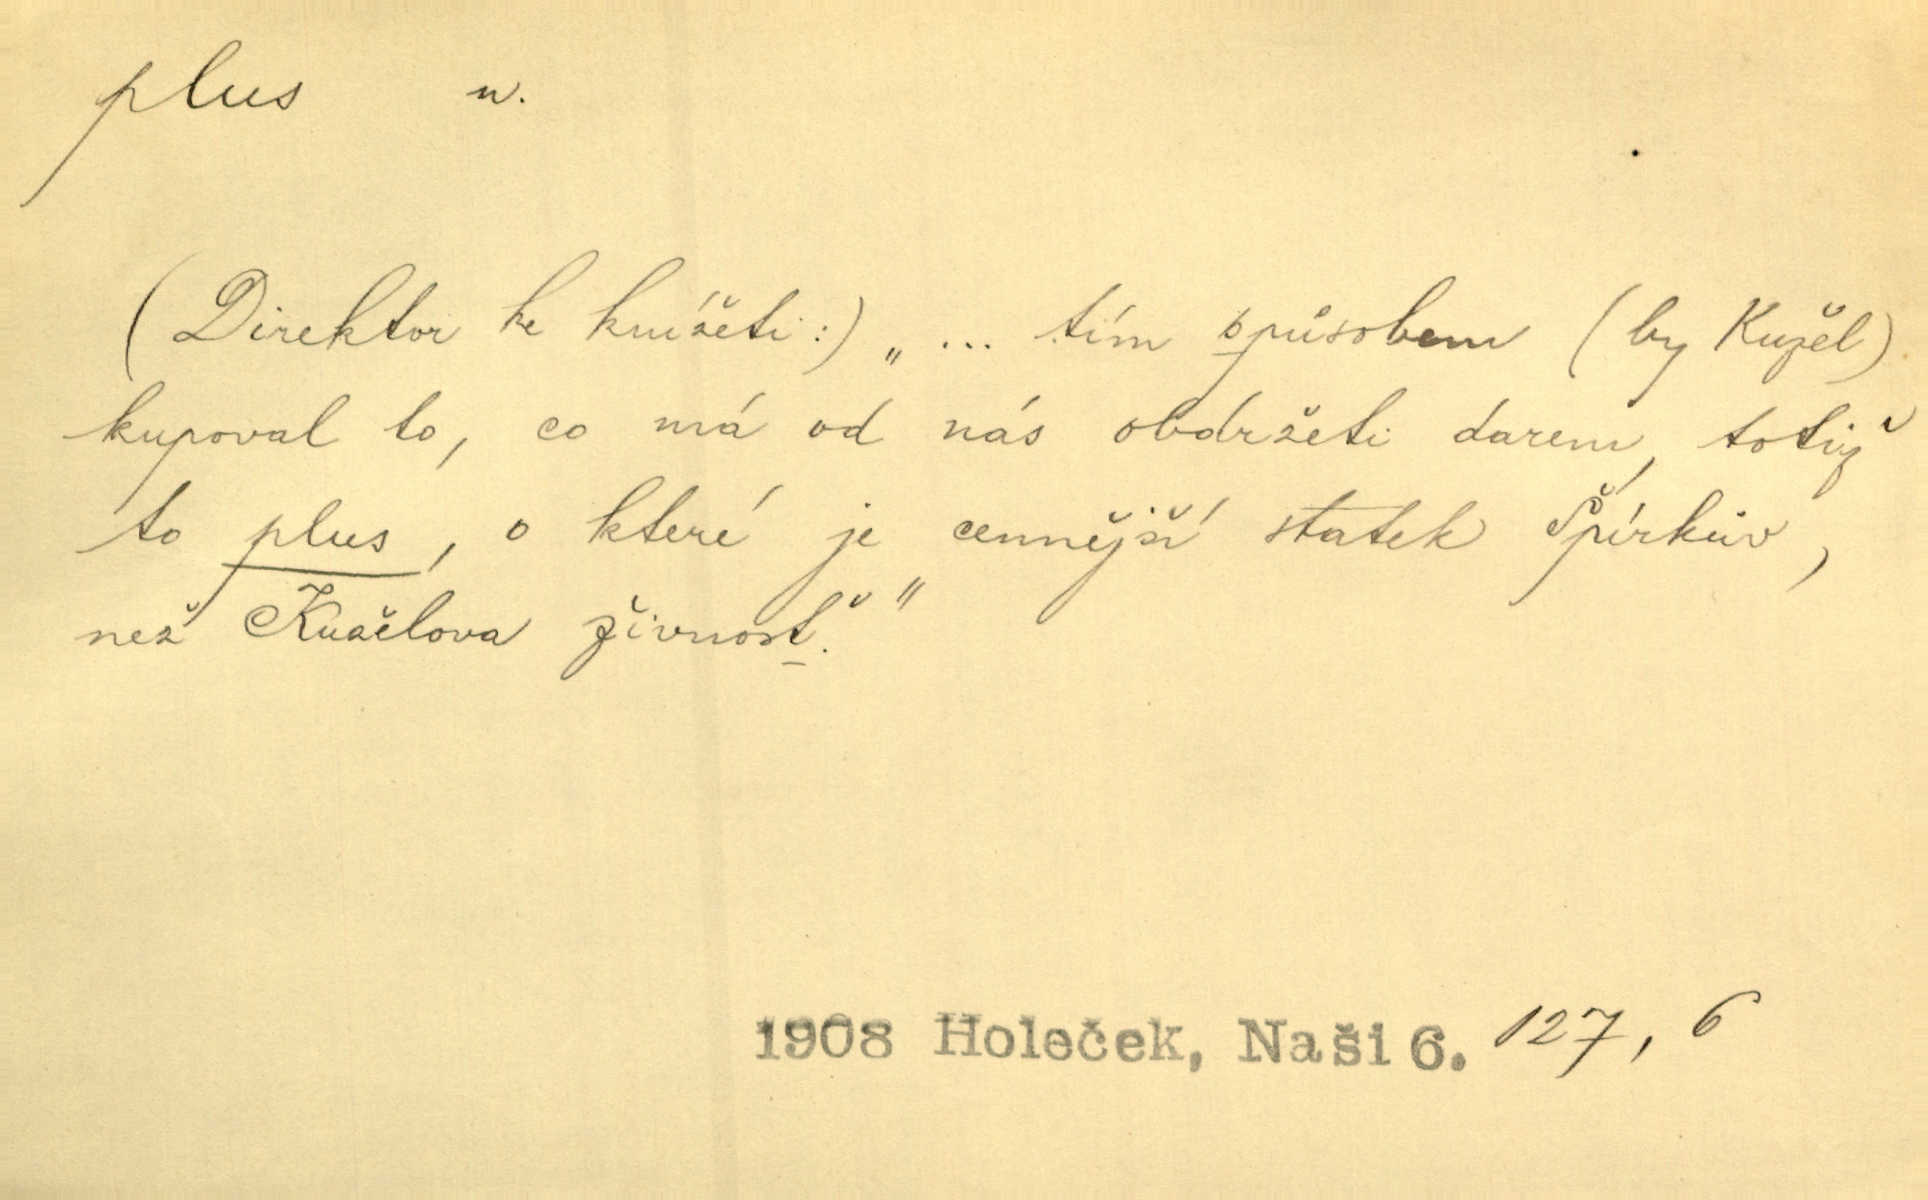 plus n.
(Direktor ke knížeti:) „ ... tím spůsobem (by Kužel)
kupoval to, co má od nás obdržeti darem, totiž
to plus, o které je cennější statek Špírkův,
než Kuželova živnosť."
1908 Holeček, Naši 6. 127, 6